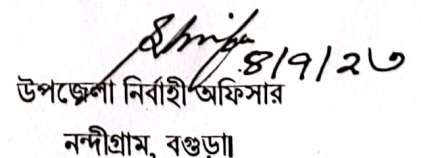 ৪/৭/২৩
উপজেলা নির্বাহী অফিসার
নন্দীগ্রাম, বগুড়া।